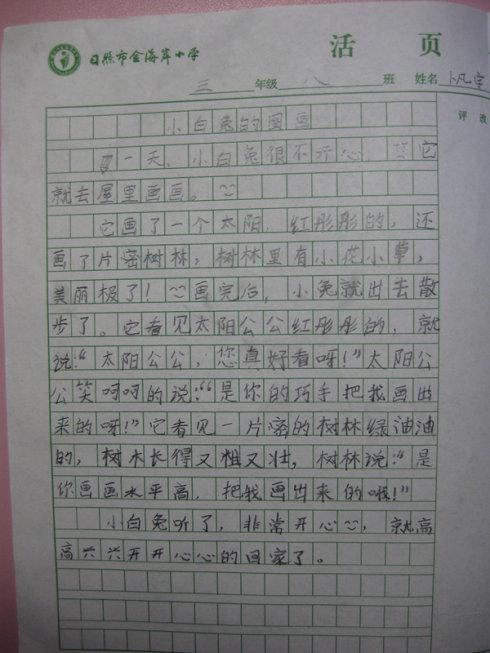 日照市金海岸小学 活页
三年级 八班 姓名 卜凡宇
评 改
小白兔的图画
一天,小白兔很不开心,它
就去屋里画画。
它画了一个太阳,红彤彤的,还
画了片密树林,树林里有小花小草,
美丽极了!画完后,小兔就出去散
步了。它看见太阳公公红彤彤的,就
说:“太阳公公,您真好看呀!”太阳公
公笑呵呵的说:“是你的巧手把我画出
来的呀!”它看见一片密的树林绿油油
的,树木长得又粗又壮,树林说:“是
你画画水平高,把我画出来的啦!”
小白兔听了,非常开心,就高
高兴兴开开心心的回家了。